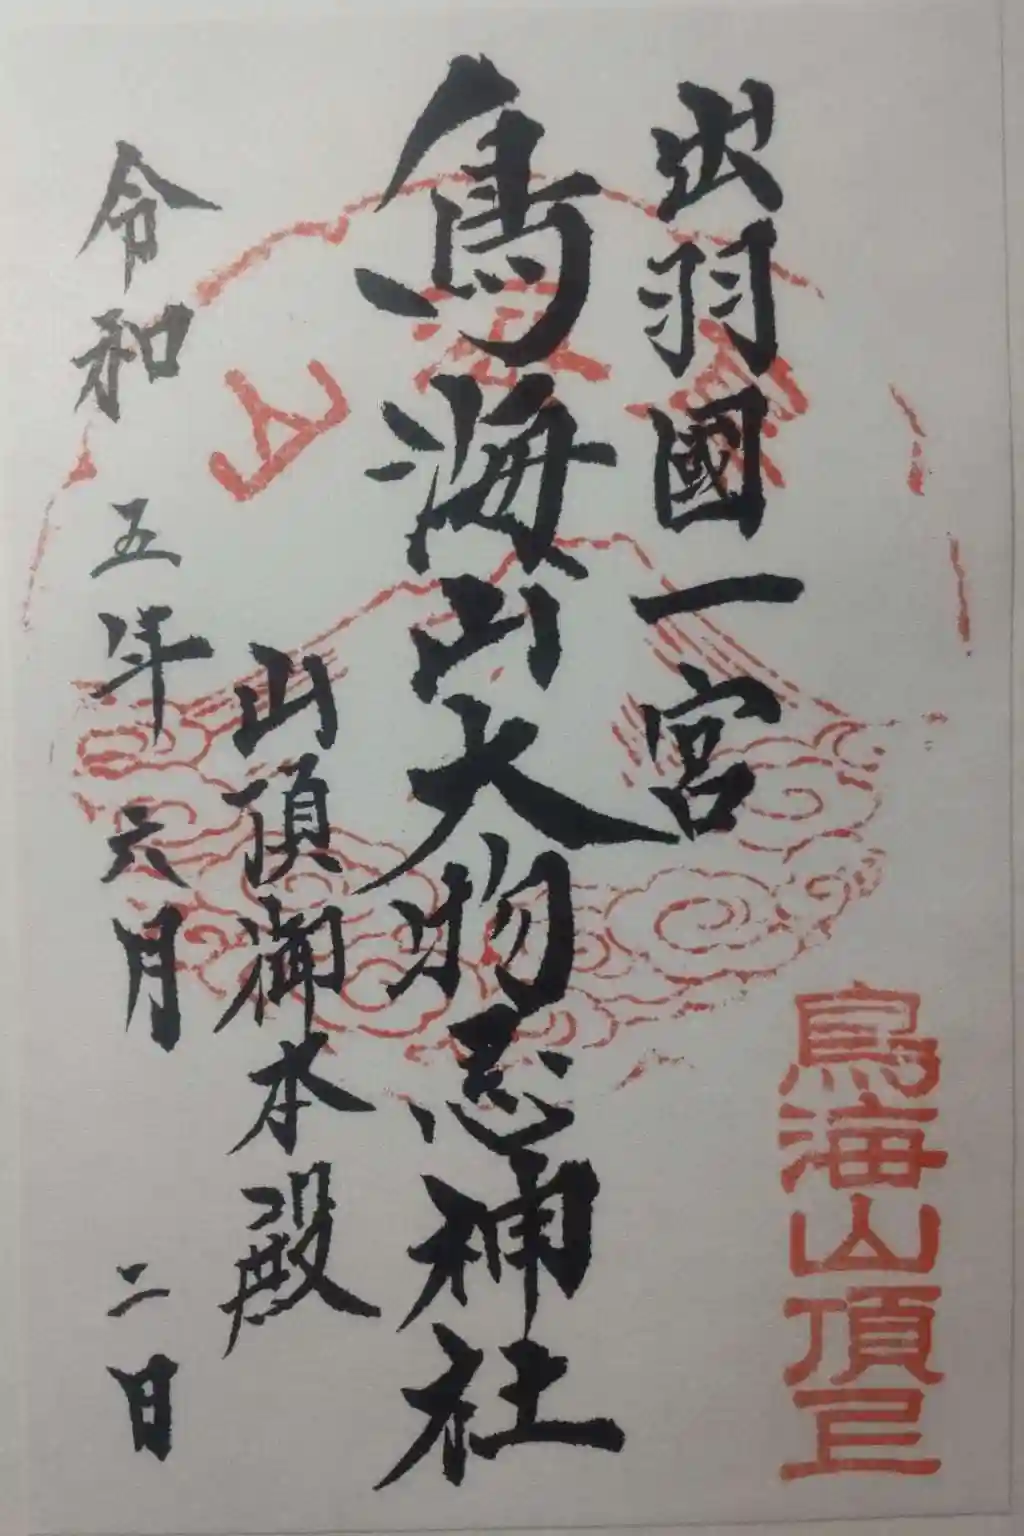 出羽國一宮
鳥海山大物忌神社
山頂御本殿
令和五年六月二日
鳥海山
鳥海山頂